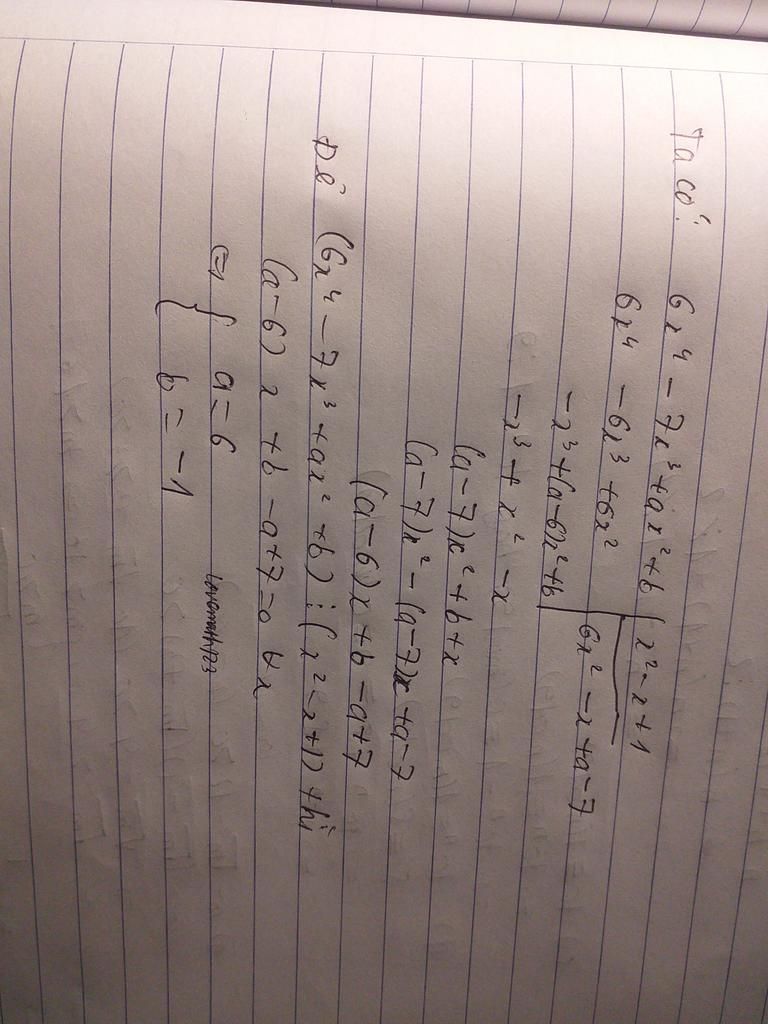 Ta có: 6x⁴ - 7x³ + ax² + b | x² - x + 1
6x⁴ - 6x³ + 6x² | 6x² - x + a - 7
- x³ + (a-6)x² + b
- x³ + x² - x
(a-7)x² + b + x
(a-7)x² - (a-7)x + a-7
(a-6)x + b - a + 7
Để (6x⁴ - 7x³ + ax² + b) ⋮ (x² - x + 1) thì
(a-6)x + b - a + 7 = 0 ∀x
⇒ { a = 6
{ b = -1